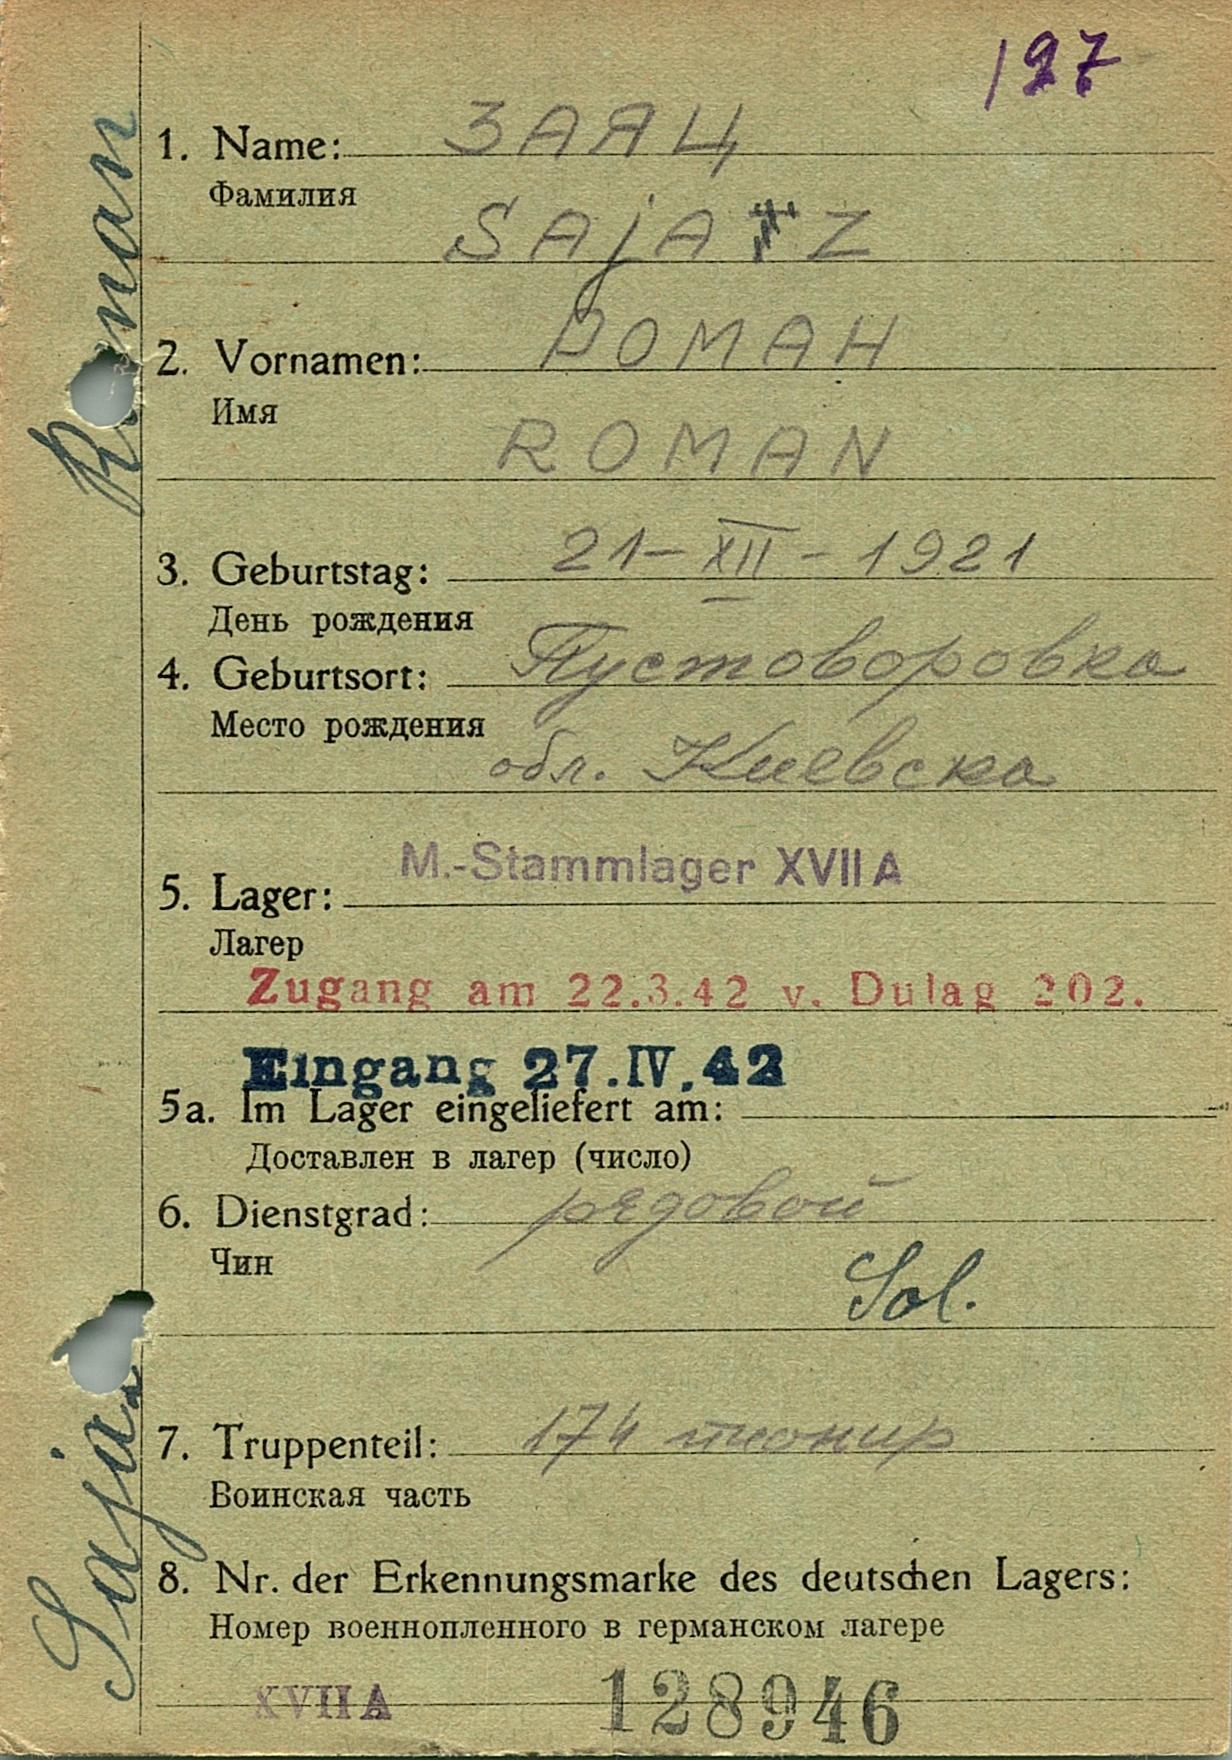 127
1. Name: ЗАЯЦ
Фамилия
SAjA Z
2. Vornamen: РОМАН
Имя
ROMAN
3. Geburtstag: 21 – XII – 1921
День рождения
4. Geburtsort: Пустоворовка
Место рождения
обл. Киевска
M.-Stammlager XVII A
5. Lager:
Лагер
Zugang am 22.3.42 v. Dulag 202.
Eingang 27.IV.42
5a. Im Lager eingeliefert am:
Доставлен в лагер (число)
6. Dienstgrad: рядовой
Чин
Sol.
7. Truppenteil: 174
Воинская часть
8. Nr. der Erkennungsmarke des deutschen Lagers:
Номер военнопленного в германском лагере
XVII A 128946
Saja
Roman